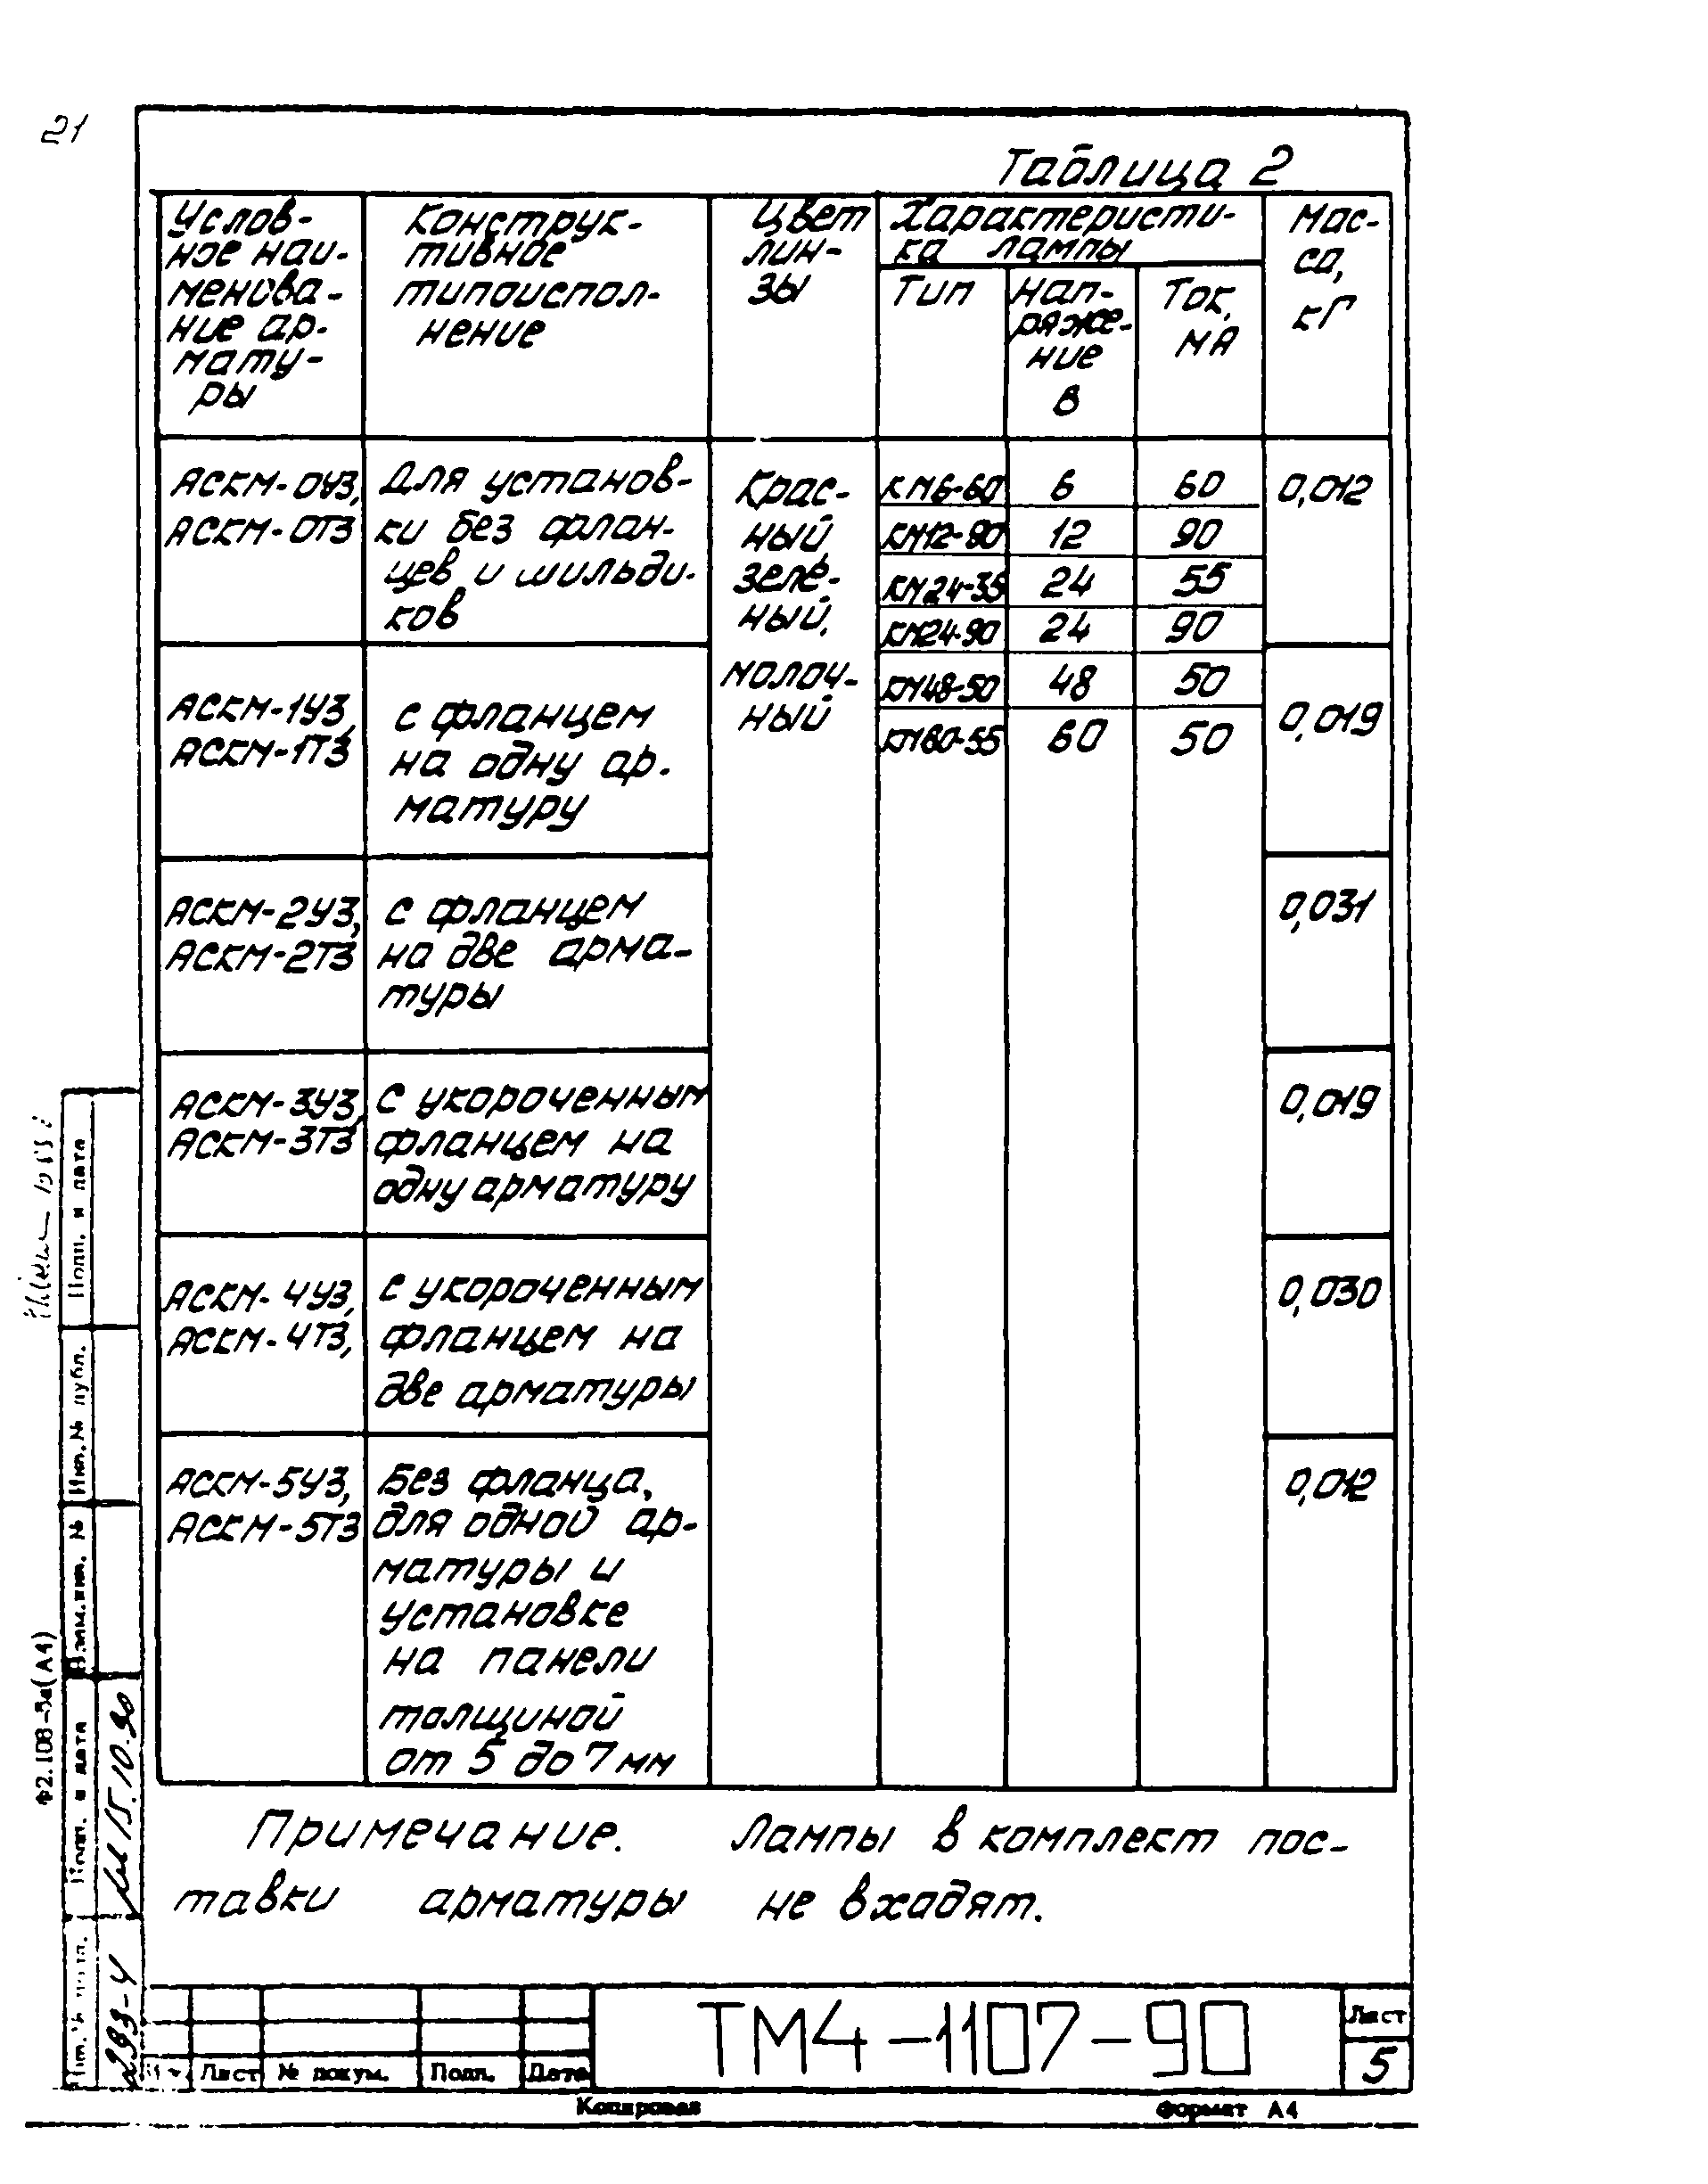 21
Таблица 2
Услов-
ное наи-
менова-
ние ар-
мату-
ры
Конструк-
тивное
типоиспол-
нение
Цвет
лин-
зы
Характеристи-
ка лампы
Тип
Нап-
ряже-
ние
В
Ток,
мА
Мас-
са,
кГ
АСКМ-0У3,
АСКМ-0Т3
Для установ-
ки без флан-
цев и шильди-
ков
Крас-
ный
зеле-
ный,
молоч-
ный
КМ6-60 6 60
КМ12-90 12 90
КМ24-35 24 55
КМ24-90 24 90
КМ48-50 48 50
КМ60-55 60 50
0,012
АСКМ-1У3,
АСКМ-1Т3
с фланцем
на одну ар-
матуру
0,019
АСКМ-2У3,
АСКМ-2Т3
с фланцем
на две арма-
туры
0,031
АСКМ-3У3,
АСКМ-3Т3
С укороченным
фланцем на
одну арматуру
0,019
АСКМ-4У3,
АСКМ-4Т3,
с укороченным
фланцем на
две арматуры
0,030
АСКМ-5У3,
АСКМ-5Т3
Без фланца,
для одной ар-
матуры и
установке
на панели
толщиной
от 5 до 7 мм
0,012
Примечание. Лампы в комплект пос-
тавки арматуры не входят.
Подп. и дата
Инв. № дубл.
Взам. инв. №
Подп. и дата
15.10.90
293-4
Ф2.108-5а(А4)
Лист № докум. Подп. Дата
ТМ4-1107-90
Лист
5
Копировал
Формат А4